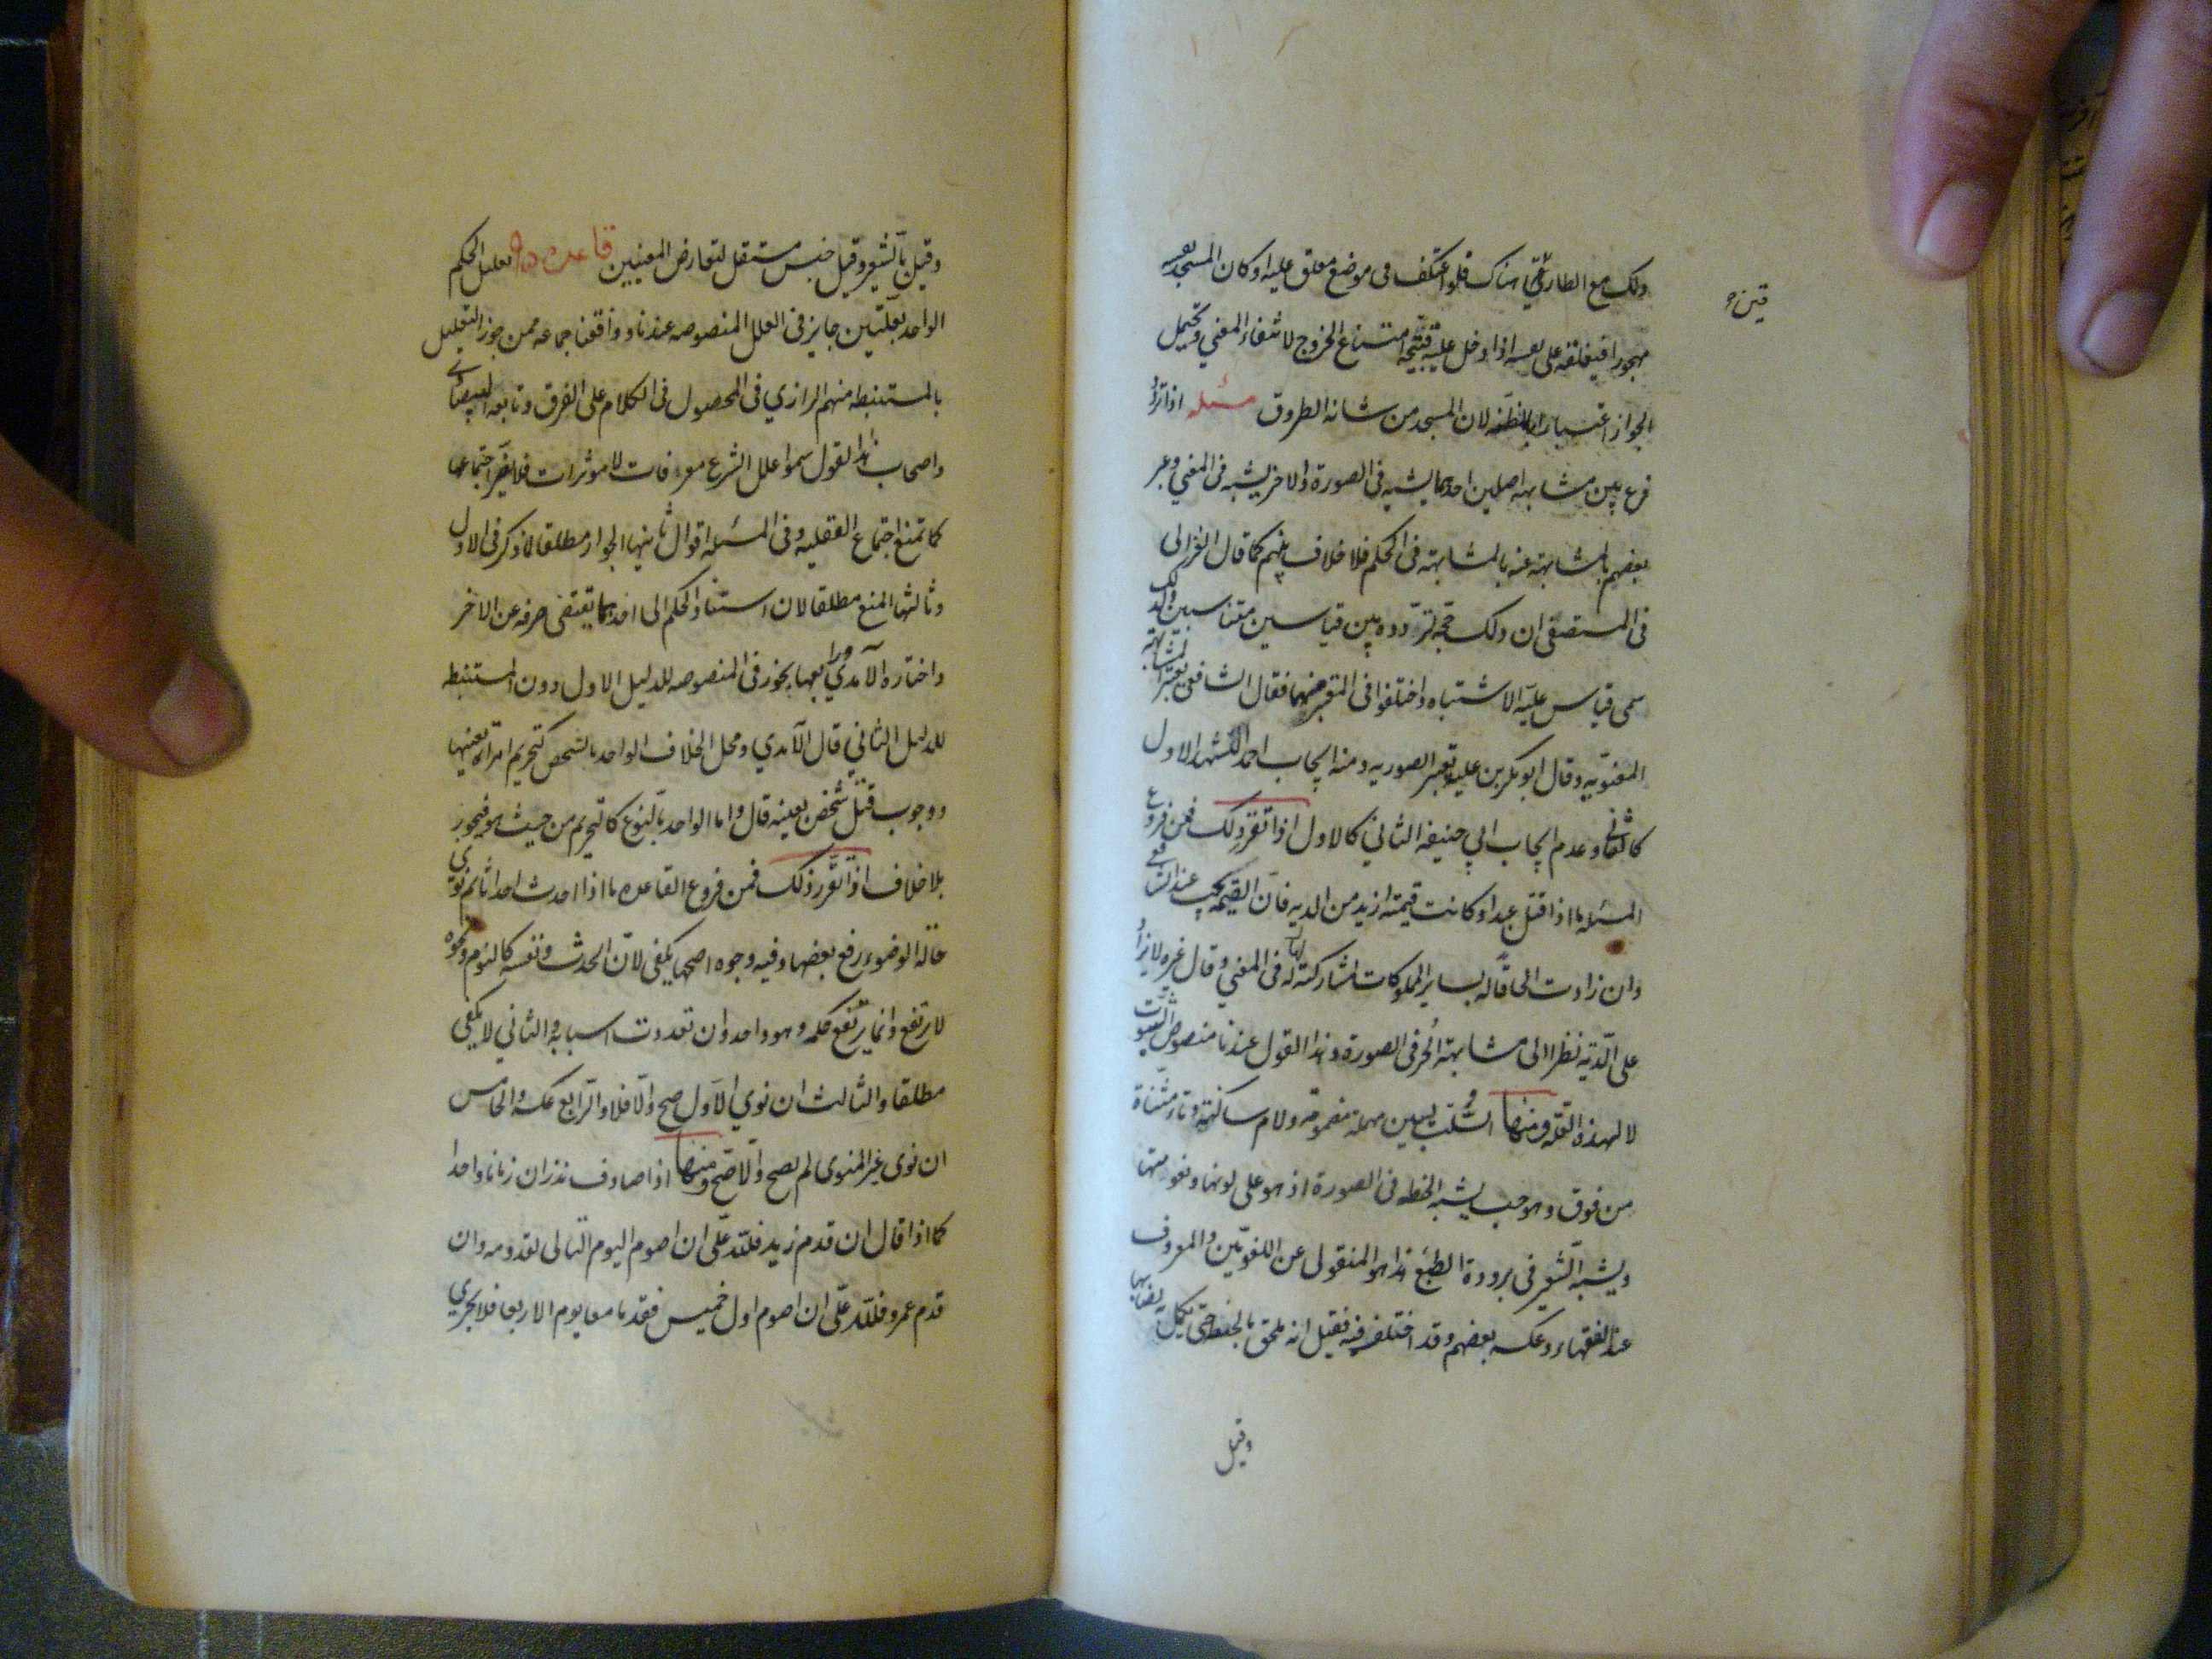 ذلك مع الطارقين هناك فلو اعتكف فى موضع مغلق عليه او كان المسجد
مهجورا فيغلقه على نفسه اذا دخل عليه فيتجه امتناع الخروج لانتفاء المعنى ويحتمل
الجواز اعتبارا بالمظنه لان المسجد من شانه الطروق مسئله اذا تردد
فرع بين مشابهه اصلين احدهما يشبهه فى الصورة والاخر يشبهه فى المعنى وعبر
بعضهم بالمشابهة عنه بالمشابهة فى الحكم فلا خلاف بينهم كما قال الغزالى
فى المستصفى ان ذلك حجه لتردده بين قياسين متناسبين ولذلك
سمى قياس علية الاشتباه واختلفوا فى المعتبر منهما فقال الشافعى يعتبر المشابهة
المعنويه وقال ابو بكر بن عليه يعتبر الصوريه ومنه ايجاب احمد التشهد الاول
كالثانى وعدم ايجاب ابي حنيفه الثاني كالاول اذا تقرر ذلك فمن فروع
المسئله ما اذا قتل عبدا وكانت قيمته ازيد من الديه فان القيمه يجب عند الشافعى
وان زادت الحاقا له بساير المملوكات لمشاركته لها فى المعنى وقال غيره لا يزاد
على الدية نظرا الى مشابهة الحر فى الصورة وهذا القول عندنا منصوص الثبوت
لا لهذه العله ومنها السلت بسين مهملة مضمومة ولام ساكنة وتاء مثناة
من فوق وهو حب يشبه الحنطه فى الصورة اذ هو على لونها ونعومتها
ويشبه الشعير فى برودة الطبع هذا هو المنقول عن اللغويين والمعروف
عند الفقهاء وعكسه بعضهم وقد اختلف فيه فقيل انه ملحق بالحنطه حتى يكمل به نصابها
وقيل
وقيل بالشعير وقيل جنس مستقل لتعارض المعنيين قاعده تعليل الحكم
الواحد بعلتين جايز فى العلل المنصوصه عندنا ووافقنا جماعه ممن جوز التعليل
بالمستنبطه منهم الرازي فى المحصول فى الكلام على الفرق وتابعه البيضاوي
واصحاب هذا القول سموا علل الشرع معرفات لا موثرات فلا يضر اجتماعها
كما تمنع اجتماع العقليه وفى المسئله اقوال ثانيها الجواز مطلقا لما ذكر فى الاول
وثالثها المنع مطلقا لان استناد الحكم الى احدهما يقتضى صرفه عن الاخر
واختاره الآمدي ورابعها يجوز فى المنصوصه للدليل الاول دون المستنبطه
للدليل الثاني قال الآمدي ومحل الخلاف الواحد بالشخص كتحريم امراة بعينها
ووجوب قتل شخص بعينه قال واما الواحد بالنوع كالتحريم من حيث هو فيجوز
بلا خلاف اذا تقرر ذلك فمن فروع القاعده ما اذا احدث احداثا ثم نوى
حالة الوضوء رفع بعضها وفيه وجوه اصحها يكفى لان الحدث نفسه كالنوم ونحوه
لا يرتفع وانما يرتفع حكمه وهو واحد وان تعددت اسبابه والثاني لا يكفى
مطلقا والثالث ان نوى الاول صح والا فلا والرابع عكسه والخامس
ان نوى غير المنوى لم يصح والا صح ومنها اذا صادف نذران زمانا واحدا
كما اذا قال ان قدم زيد فلله على ان اصوم اليوم التالى لقدومه وان
قدم عمرو فلله على ان اصوم اول خميس فقدما معا يوم الاربعا فلا يجزى